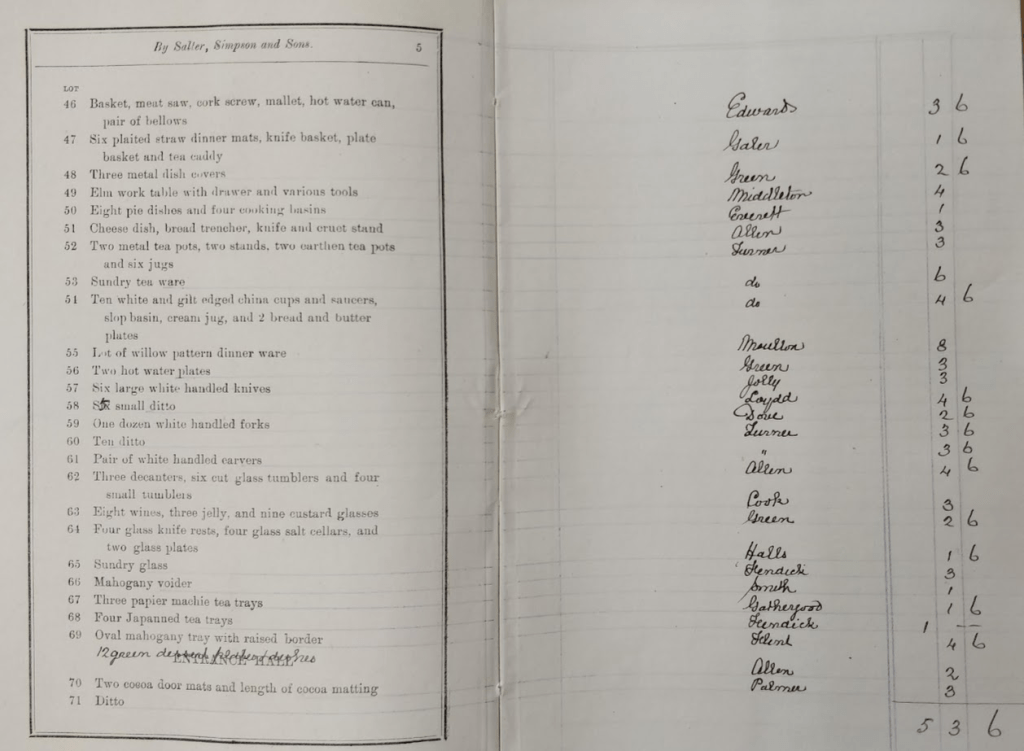 By Salter, Simpson and Sons. 5
LOT
46 Basket, meat saw, cork screw, mallet, hot water can,
pair of bellows
47 Six plaited straw dinner mats, knife basket, plate
basket and tea caddy
48 Three metal dish covers
49 Elm work table with drawer and various tools
50 Eight pie dishes and four cooking basins
51 Cheese dish, bread trencher, knife and cruet stand
52 Two metal tea pots, two stands, two earthen tea pots
and six jugs
53 Sundry tea ware
54 Ten white and gilt edged china cups and saucers,
slop basin, cream jug, and 2 bread and butter
plates
55 Lot of willow pattern dinner ware
56 Two hot water plates
57 Six large white handled knives
58 small ditto
59 One dozen white handled forks
60 Ten ditto
61 Pair of white handled carvers
62 Three decanters, six cut glass tumblers and four
small tumblers
63 Eight wines, three jelly, and nine custard glasses
64 Four glass knife rests, four glass salt cellars, and
two glass plates
65 Sundry glass
66 Mahogany voider
67 Three papier machie tea trays
68 Four Japanned tea trays
69 Oval mahogany tray with raised border
12 green dessert dishes
ENTRANCE HALL
70 Two cocoa door mats and length of cocoa matting
71 Ditto
Edwards 3 6
Galer 1 6
Green 2 6
Middleton 4
Everett 1
Allen 3
Turner 3
do 6
do 4 6
Moulton 8
Green 3
Jolly 3
Loydd 4 6
Dove 2 6
Turner 3 6
" 3 6
Allen 4 6
Cook 3
Green 2 6
Halls 1 6
Kendick 3
Smith 1
Gathergood 1 6
Kendick 1 —
Kent 4 6
Allen 2
Palmer 3
5 3 6